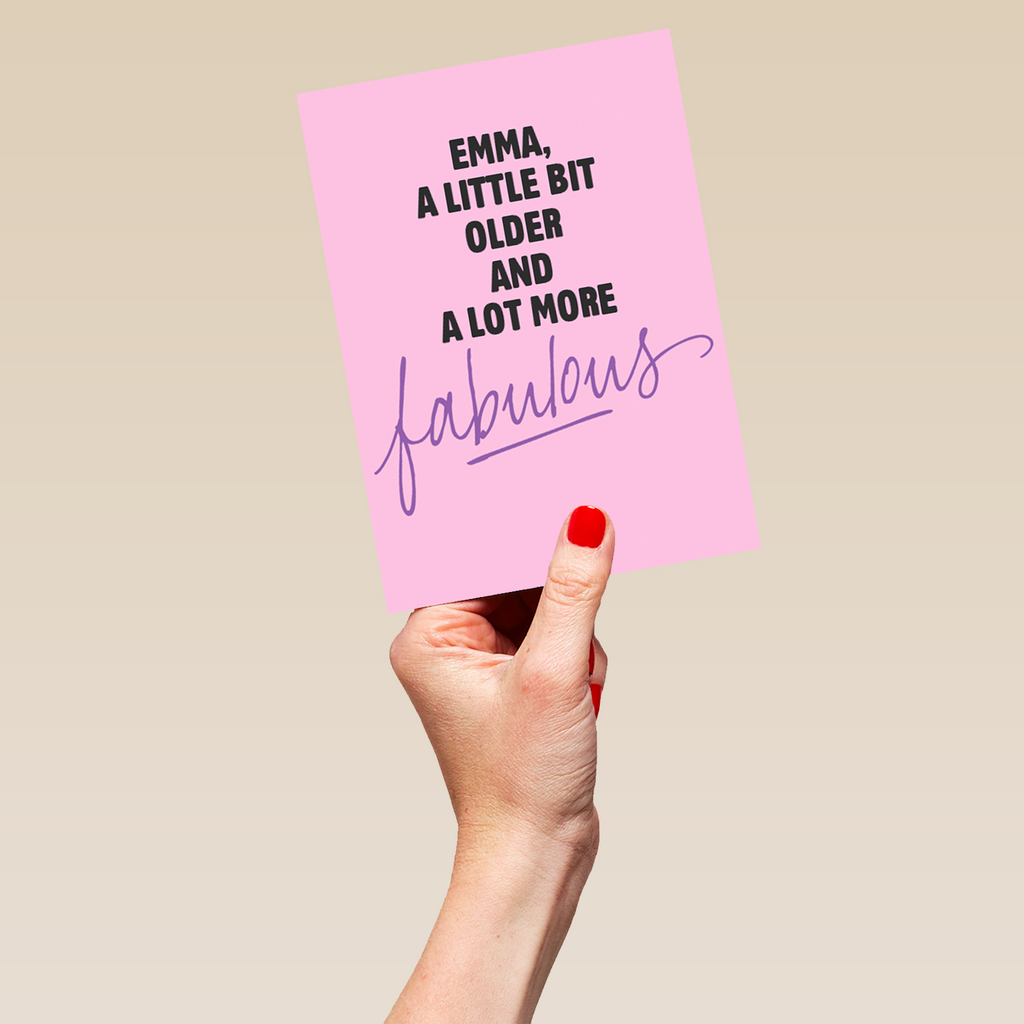 EMMA,
A LITTLE BIT
OLDER
AND
A LOT MORE
fabulous